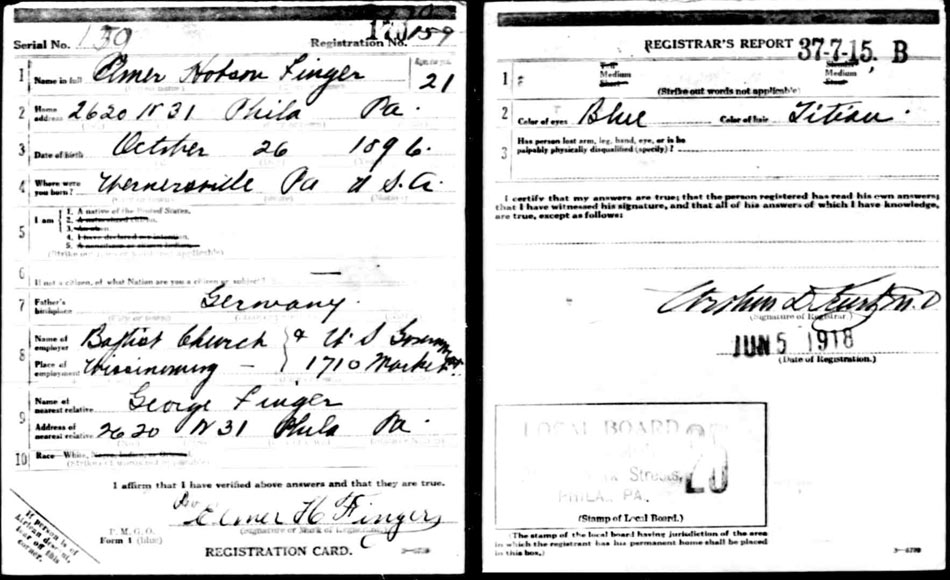 Serial No. 159
Registration No. 159
1 Name in full Elmer Hobson Finger
Age in yrs. 21
2 Home address 2620 N 31 Phila Pa.
3 Date of birth October 26 1896.
4 Where were you born? Wernersville Pa U.S.A.
5 I am
1. A native of the United States.
2. A naturalized citizen.
3. An alien.
4. I have declared my intention.
5. A noncitizen or citizen Indian.
6 If not a citizen, of what Nation are you a citizen or subject? —
7 Father's birthplace Germany.
8 Name of employer Baptist Church & U S
Place of employment Wissinoming — 1710 Market
9 Name of nearest relative George Finger
Address of nearest relative 2620 N 31 Phila Pa.
10 Race— White,
I affirm that I have verified above answers and that they are true.
Elmer H Finger
P. M. G. O.
Form 1 (blue)
REGISTRATION CARD.
If person is of African descent, tear off this corner.
REGISTRAR'S REPORT 37-7-15. B
1 Tall Medium Short
Slender Medium Stout
(Strike out words not applicable)
2 Color of eyes Blue Color of hair Titian.
3 Has person lost arm, leg, hand, eye, or is he
palpably physically disqualified (specify)?
I certify that my answers are true; that the person registered has read his own answers;
that I have witnessed his signature, and that all of his answers of which I have knowledge,
are true, except as follows:
(Signature of Registrar)
JUN 5 1918
(Date of Registration.)
LOCAL BOARD
Streets,
PHILA. PA.
(Stamp of Local Board.)
(The stamp of the local board having jurisdiction of the area
in which the registrant has his permanent home shall be placed
in this box.)